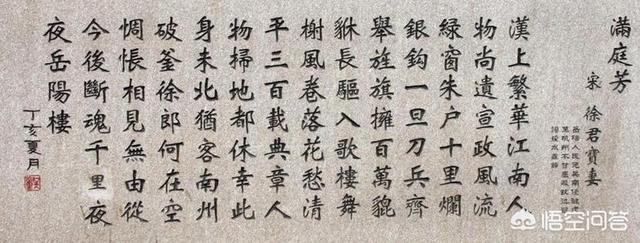 滿庭芳
宋 徐君寶妻
漢上繁華江南人
物尚遺宣政風流
綠窗朱戶十里爛
銀鉤一旦刀兵齊
舉旌旗擁百萬貔
貅長驅入歌樓舞
榭風卷落花愁清
平三百載典章人
物掃地都休幸此
身未北猶客南州
破釜徐郎何在空
惆悵相見無由從
今後斷魂千里夜
夜岳陽樓
丁亥夏月
悟空问答